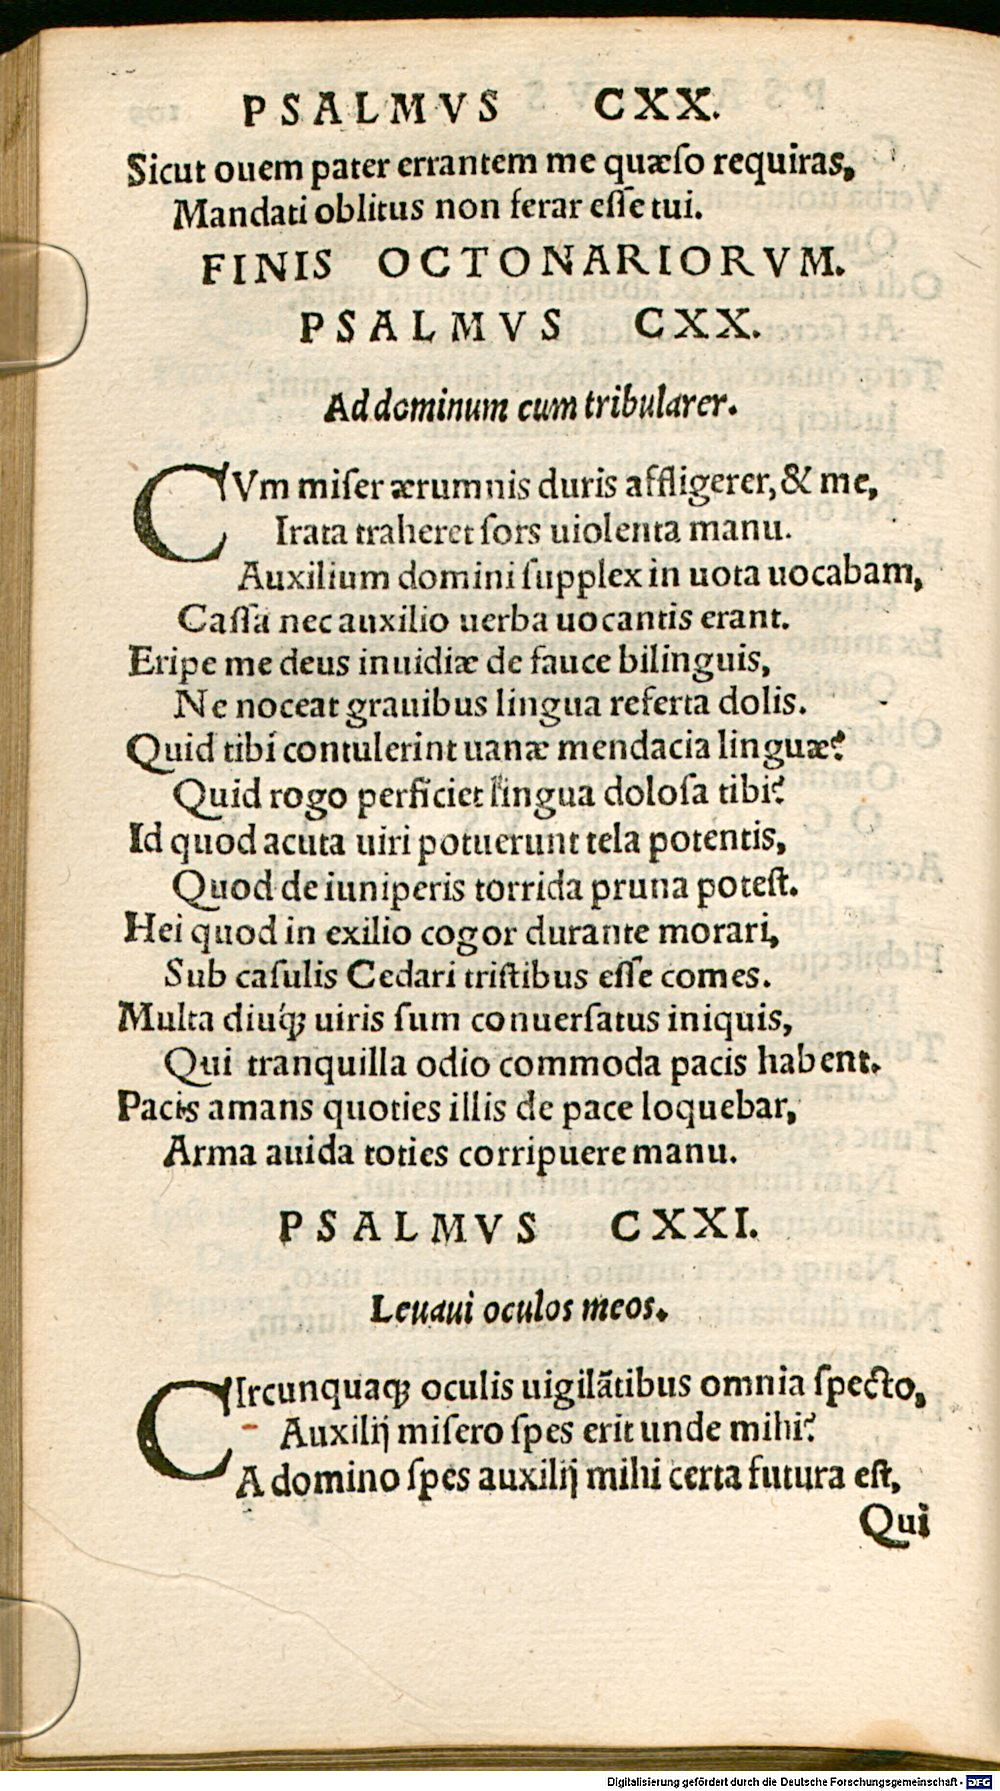 PSALMVS CXX.
Sicut ouem pater errantem me quæſo requiras,
Mandati oblitus non ferar eſſe tui.
FINIS OCTONARIORVM.
PSALMVS CXX.
Ad dominum cum tribularer.
CVm miſer ærumnis duris affligerer, & me,
Irata traheret ſors uiolenta manu.
Auxilium domini ſupplex in uota uocabam,
Caſſa nec auxilio uerba uocantis erant.
Eripe me deus inuidiæ de fauce bilinguis,
Ne noceat grauibus lingua referta dolis.
Quid tibi contulerint uanæ mendacia linguæ?
Quid rogo perficiet lingua doloſa tibi?
Id quod acuta uiri potuerunt tela potentis,
Quod de iuniperis torrida pruna poteſt.
Hei quod in exilio cogor durante morari,
Sub caſulis Cedari triſtibus eſſe comes.
Multa diuq́ꝫ uiris ſum conuerſatus iniquis,
Qui tranquilla odio commoda pacis habent.
Pacis amans quoties illis de pace loquebar,
Arma auida toties corripuere manu.
PSALMVS CXXI.
Leuaui oculos meos.
CIrcunquaqꝫ oculis uigilãtibus omnia ſpecto,
Auxilij miſero ſpes erit unde mihi?
A domino ſpes auxilij mihi certa futura eſt,
Qui
Digitalisierung gefördert durch die Deutsche Forschungsgemeinschaft - DFG